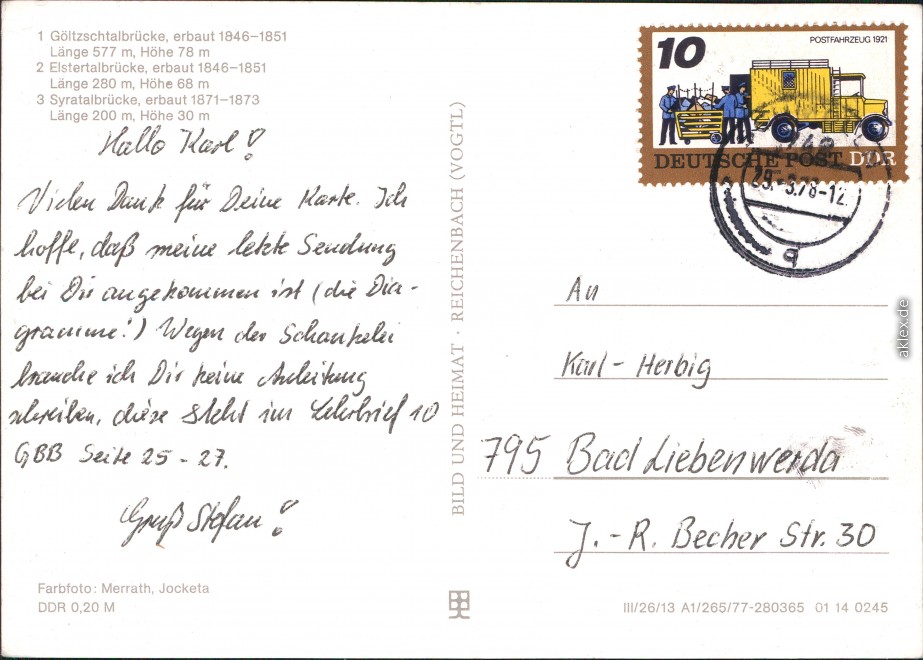 1 Göltzschtalbrücke, erbaut 1846–1851
Länge 577 m, Höhe 78 m
2 Elstertalbrücke, erbaut 1846–1851
Länge 280 m, Höhe 68 m
3 Syratalbrücke, erbaut 1871–1873
Länge 200 m, Höhe 30 m
Hallo Karl!
Vielen Dank für Deine Karte. Ich
hoffe, daß meine letzte Sendung
bei Dir angekommen ist (die Dia-
gramme!) Wegen der Schaukelei
brauche ich Dir keine Anleitung
schreiben, diese steht im Lehrbrief 10
GBB Seite 25 - 27.
Gruß Stefan!
Farbfoto: Merrath, Jocketa
DDR 0,20 M
BILD UND HEIMAT · REICHENBACH (VOGTL)
10
POSTFAHRZEUG 1921
DEUTSCHE POST DDR
78-12
q
An
Karl - Herbig
795 Bad Liebenwerda
J. - R. Becher Str. 30
III/26/13 A1/265/77-280365 01 14 0245
aklex.de